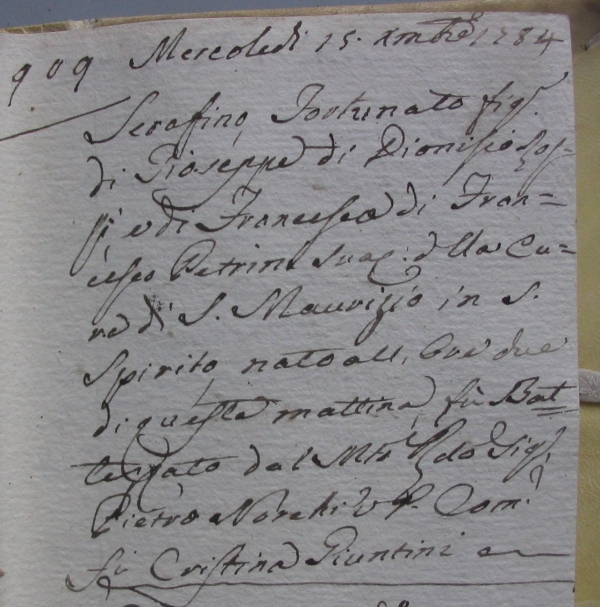 909 Mercoledì 15. Xmbre 1784
Serafino Fortunato figo.
di Gioseppe di Dionisio Ros-
si e di Francesca di Fran=
cesco Petrini Suac: della Cu=
ra di S. Maurizio in S.
Spirito nato all, Ore due
di questa mattina, fù Bat
tezzato dal Mto Rdo Sigr.
Pietro Norchi V P. Com:
fù Cristina Giuntini